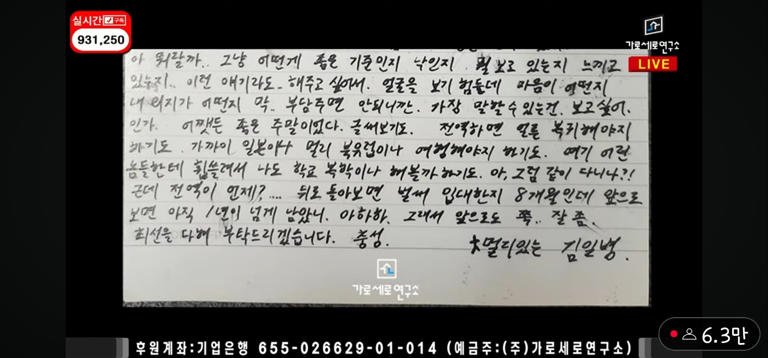 실시간 구독
931,250
가로세로연구소
LIVE
아 뭐랄까.. 그냥 어떻게 좀은 기준인지 낙인지 뭘 보고 있는지 느끼고
있는지.. 이런 얘기라도.. 해주고 싶어서. 얼굴을 보기 힘든데 마음이 어떤지
내 의지가 어떤지 막.. 부담주면 안되니깐. 가장 말할 수 있는건. 보고싶어.
인가. 어쨋든 좋은 주말이었다. 글써보기도. 전역하면 얼른 복귀해야지
하기도. 가까이 일본이나 멀리 북유럽이나 여행해야지 하기도. 여기 어린
놈들한테 휩쓸려서 나도 학교 복학이나 해볼까 하기도. 아, 그럼 같이 다니나?!
근데 전역이 언제?.... 뒤로 돌아보면 벌써 입대한지 8개월인데 앞으로
보면 아직 1년이 넘게 남았니. 아하하. 그래서 앞으로도 쭉.. 잘 좀.
최선을 다해 부탁드리겠습니다. 충성.
멀리있는 김일병.
가로세로연구소
후원계좌:기업은행 655-026629-01-014 (예금주:(주)가로세로연구소)
6.3만